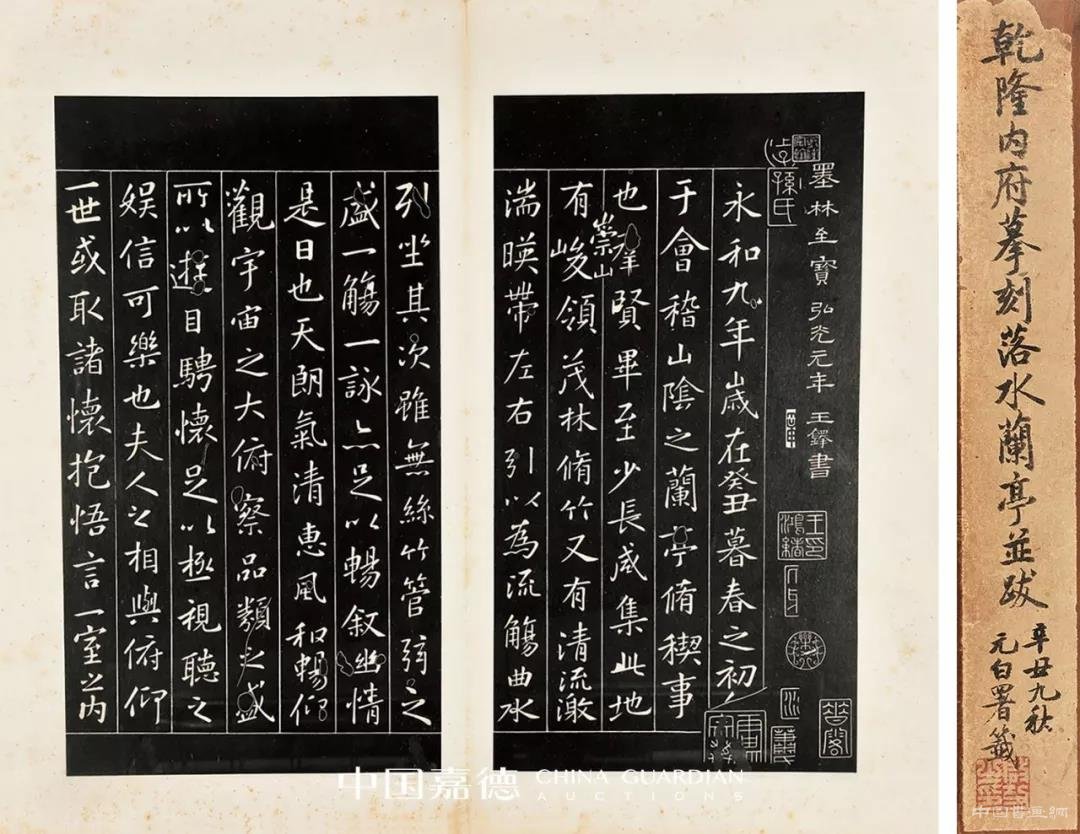 乾隆内府摹刻落水蘭亭並跋
辛丑九秋
元白署籤
墨林至寶 弘光元年 王鐸書
孫氏
王印
鴻緒
永和九年歲在癸丑暮春之初
于會稽山陰之蘭亭脩稧事
也羣賢畢至少長咸集此地
有崇山峻領茂林脩竹又有清流激
湍暎帶左右引以為流觴曲水
列坐其次雖無絲竹管弦之
盛一觴一詠亦足以暢叙幽情
是日也天朗氣清惠風和暢仰
觀宇宙之大俯察品類之盛
所以遊目騁懷足以極視聽之
娛信可樂也夫人之相與俯仰
一世或取諸懷抱悟言一室之內
中国嘉德 CHINA GUARDIAN
AUCTIONS
中国书画網